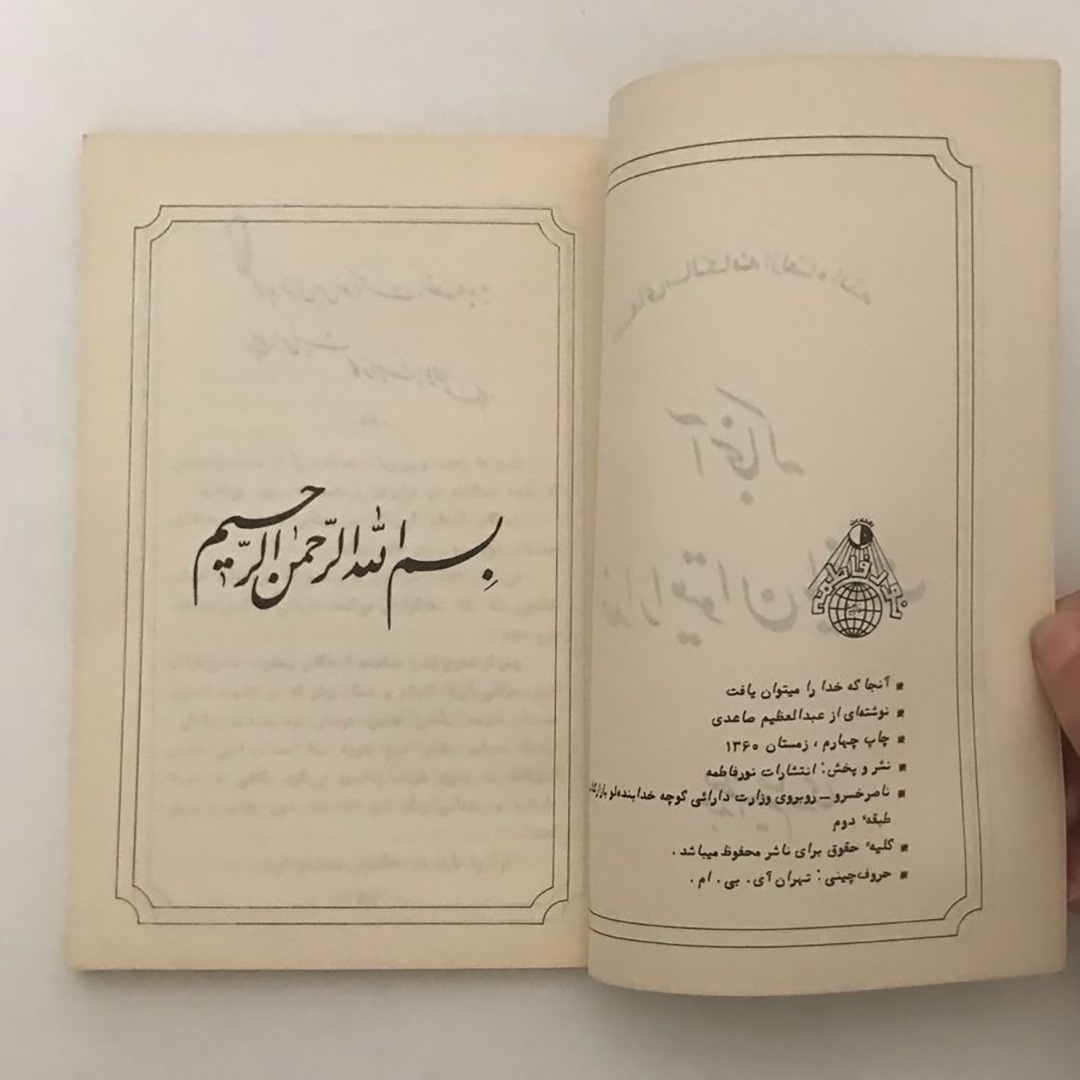 نورفاطمه
آنجا که خدا را میتوان یافت
نوشته‌ای از عبدالعظیم صاعدی
چاپ چهارم ، زمستان ۱۳۶۰
نشر و پخش: انتشارات نورفاطمه
ناصرخسرو ــ روبروی وزارت دارائی کوچه خدابنده‌لو
طبقهٔ دوم
کلیهٔ حقوق برای ناشر محفوظ میباشد .
حروف‌چینی: تهران آی . بی . ام .
بسم الله الرّحمٰن الرّحیم